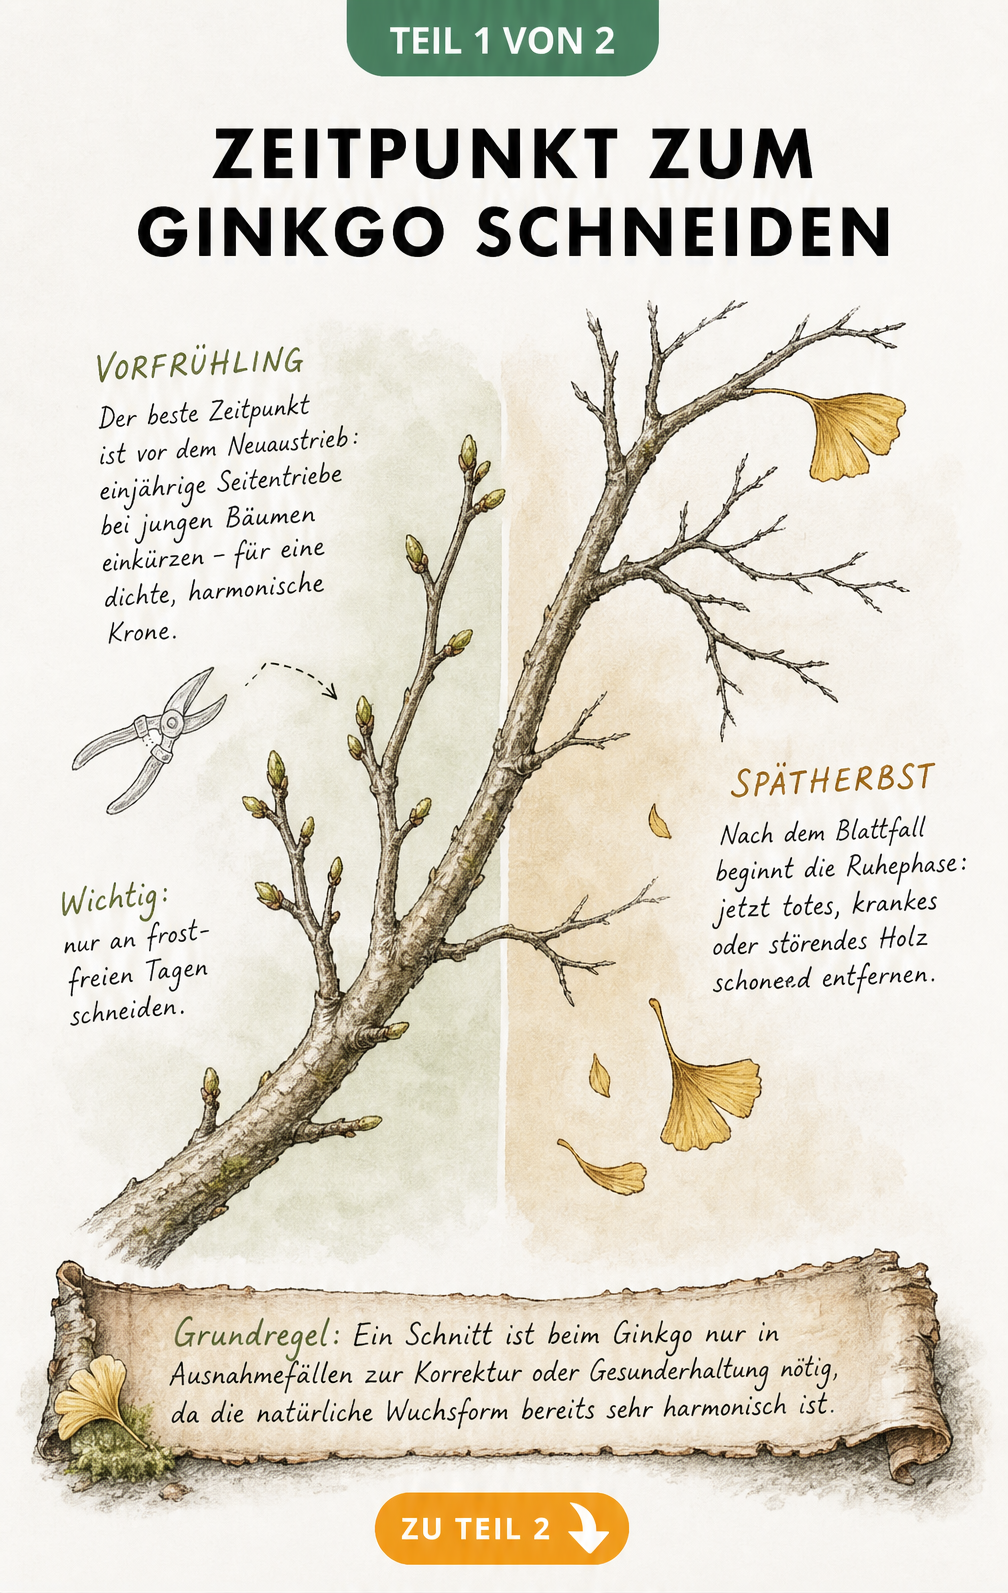 TEIL 1 VON 2
ZEITPUNKT ZUM
GINKGO SCHNEIDEN
VORFRÜHLING
Der beste Zeitpunkt
ist vor dem Neuaustrieb:
einjährige Seitentriebe
bei jungen Bäumen
einkürzen – für eine
dichte, harmonische
Krone.
Wichtig:
nur an frost-
freien Tagen
schneiden.
SPÄTHERBST
Nach dem Blattfall
beginnt die Ruhephase:
jetzt totes, krankes
oder störendes Holz
entfernen.
Grundregel: Ein Schnitt ist beim Ginkgo nur in
Ausnahmefällen zur Korrektur oder Gesunderhaltung nötig,
da die natürliche Wuchsform bereits sehr harmonisch ist.
ZU TEIL 2